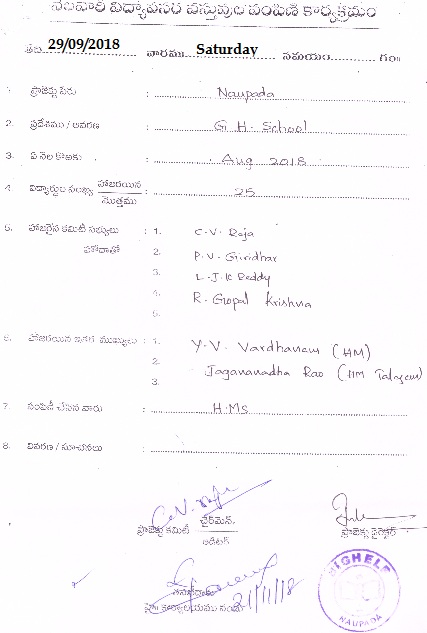 నెలవారీ విద్యావసర వస్తువుల పంపిణీ కార్యక్రమం
తేది 29/09/2018 వారము Saturday సమయం గం॥
1. ప్రాజెక్టు పేరు : Naupada
2. ప్రదేశము / ఆవరణ : G.H. School
3. ఏ నెల కొఱకు : Aug 2018
4. విద్యార్థుల సంఖ్య హాజరయిన / మొత్తము : 25
5. హాజరైన కమిటీ సభ్యులు : 1. C.V. Raja
హోదాతో 2. P.V. Giridhar
3. L.J.K Reddy
4. R. Gopal Krishna
5.
6. హాజరయిన ఇతర ముఖ్యులు : 1. Y.V. Vardhanam (HM)
2. Jagananadha Rao (HM
3.
7. పంపిణీ చేసిన వారు : H.Ms
8. వివరణ / సూచనలు :
C.V. Raju
ప్రాజెక్టు కమిటీ ఛైర్మెన్ ప్రాజెక్టు డైరెక్టర్
ఆడిటర్
HIGHELP
NAUPADA
21/11/18